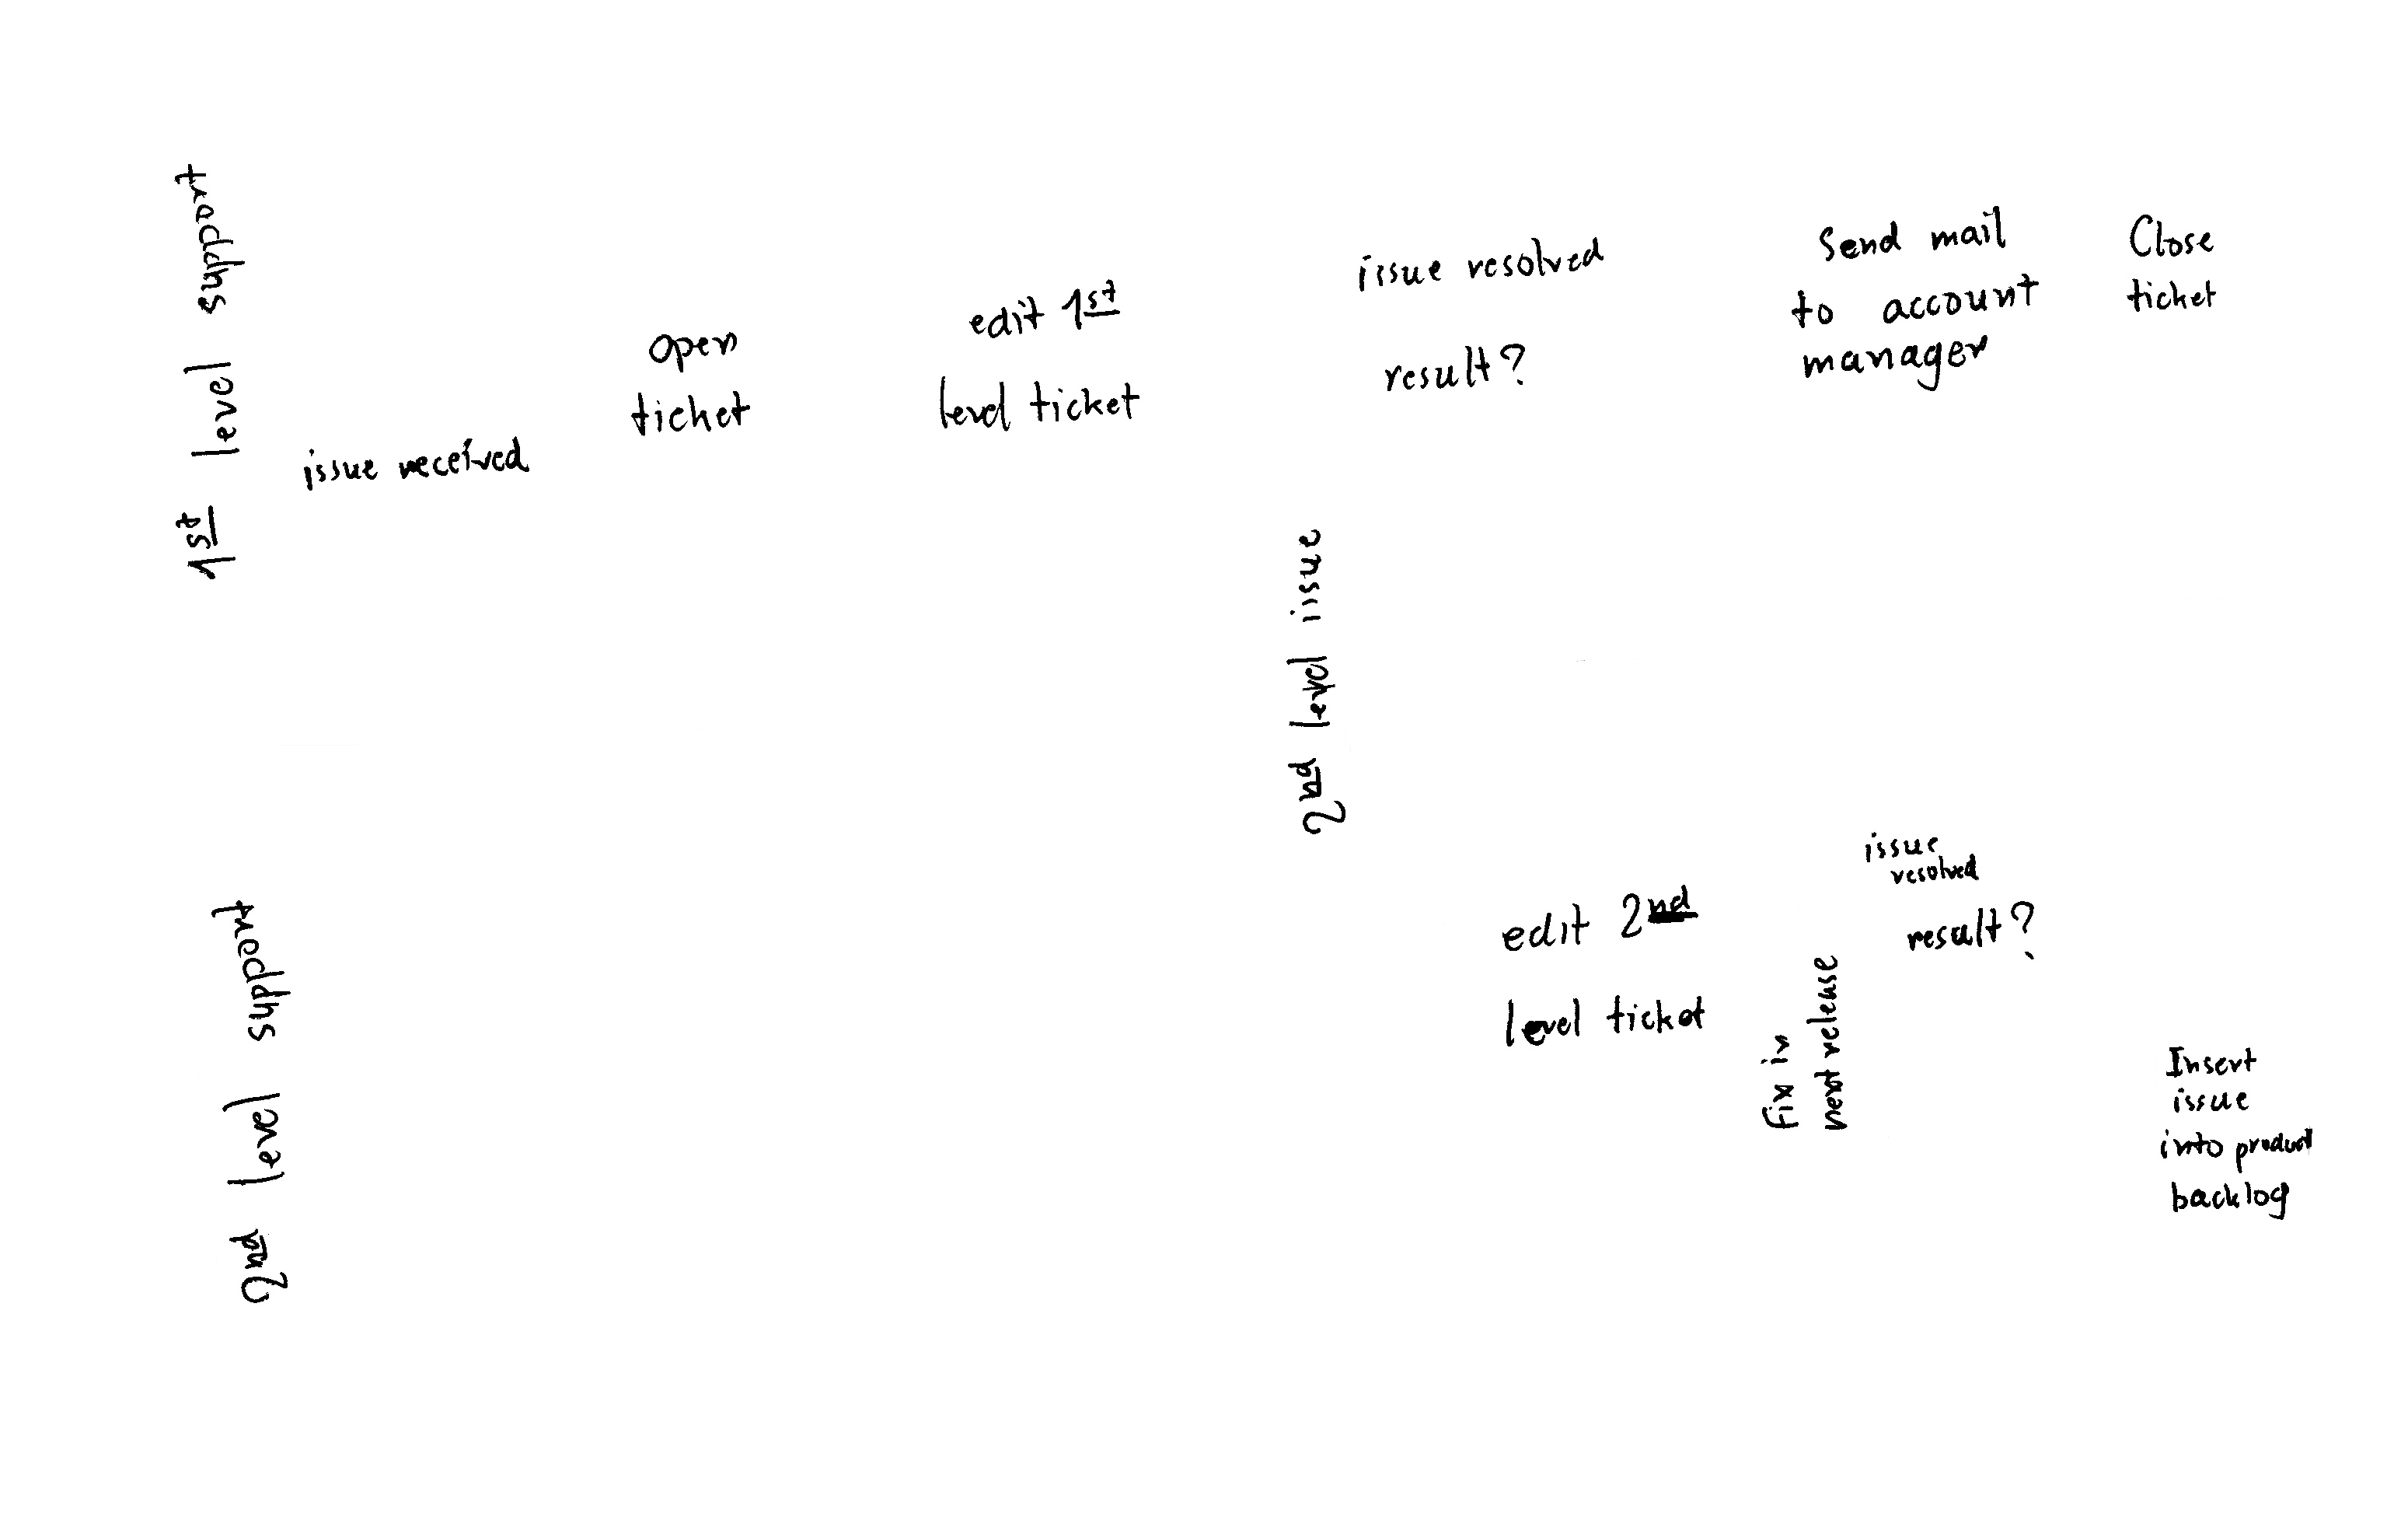 1st level support
issue received
open
ticket
edit 1st
level ticket
issue resolved
result?
Send mail
to account
manager
Close
ticket
2nd level issue
2nd level support
edit 2nd
level ticket
fix in
next release
issue
resolved
result?
Insert
issue
into product
backlog